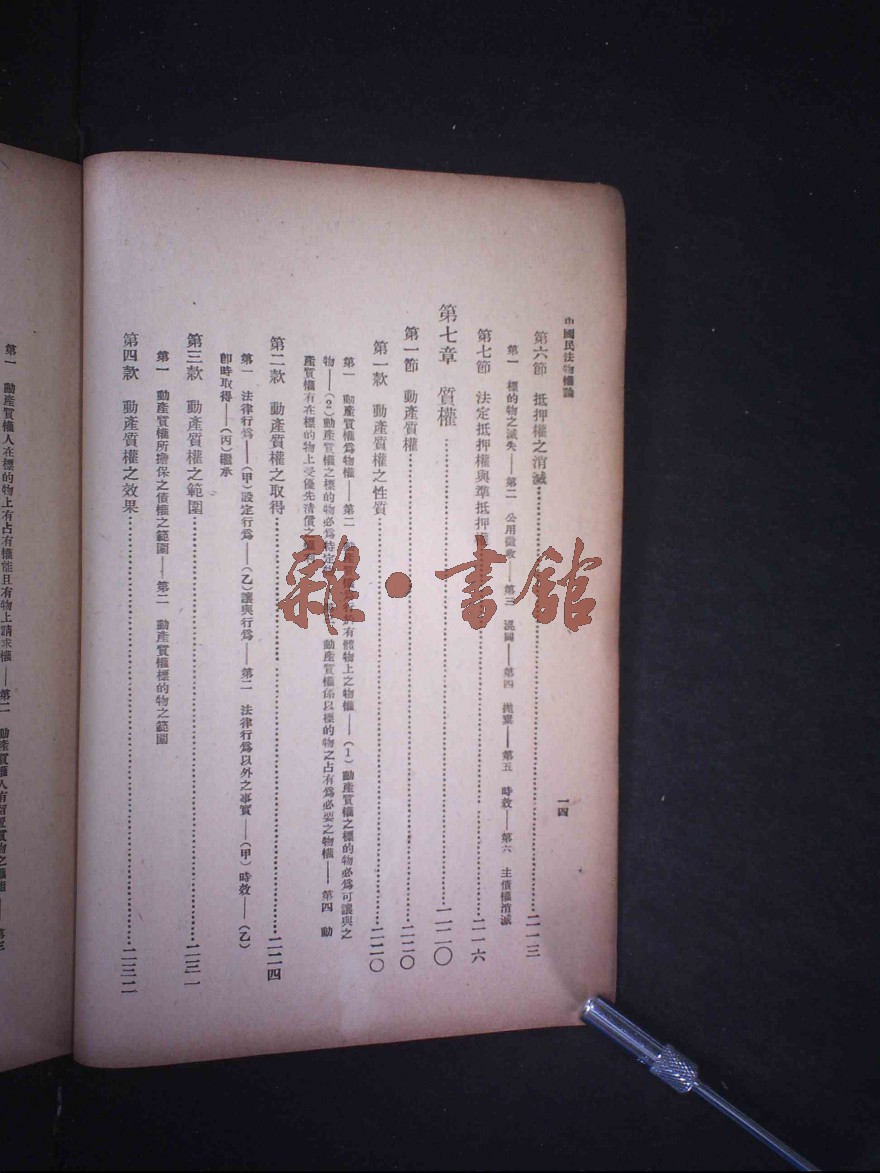 中國民法物權論
一四
第六節 抵押權之消滅……二一三
第一 標的物之滅失——第二 公用徵收——第三 混同——第四 拋棄——第五 時效——第六 主債權消滅
第七節 法定抵押權與準抵押權……二一六
第七章 質權……二二〇
第一節 動產質權……二二〇
第一款 動產質權之性質……二二〇
第一 動產質權爲物權——第二 動產質權 有體物上之物權——(1)動產質權之標的物必爲可讓與之
物——(2)動產質權之標的物必爲特定 動產質權係以標的物之占有爲必要之物權——第四 動
產質權有在標的物上受優先清償之
第二款 動產質權之取得……二二四
第一 法律行爲——(甲)設定行爲——(乙)讓與行爲——第二 法律行爲以外之事實——(甲)時效——(乙)
卽時取得——(丙)繼承
第三款 動產質權之範圍……二三一
第一 動產質權所擔保之債權之範圍——第二 動產質權標的物之範圍
第四款 動產質權之效果……二三二
第一 動產質權人在標的物上有占有權能且有物上請求權——第二 動產質權人有留置質物之權能——第三
雜·書館